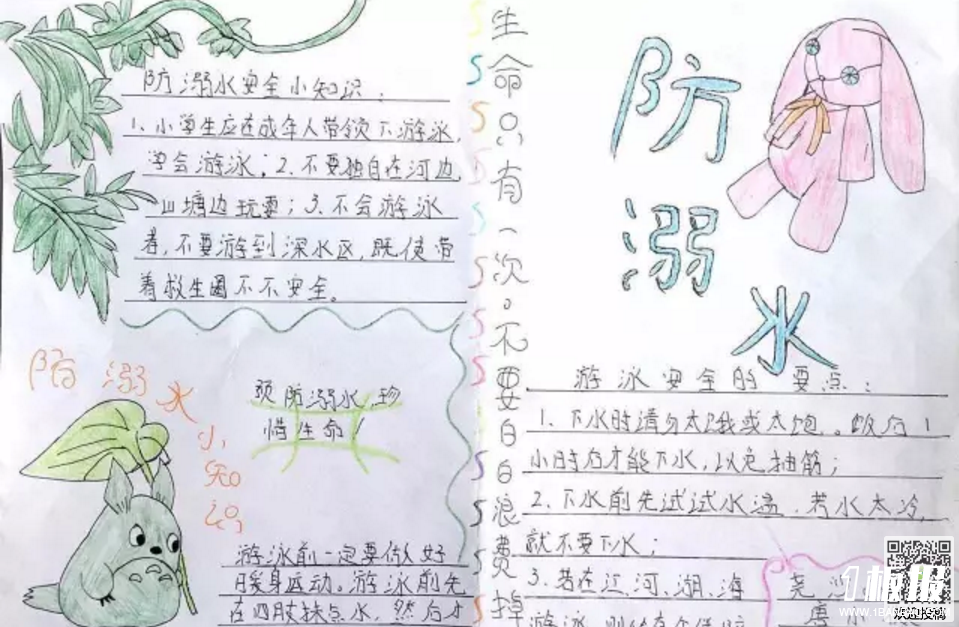 防溺水安全小知识：
1、小学生应在成年人带领下游泳，
学会游泳；2、不要独自在河边、
山塘边玩耍；3、不会游泳
者，不要游到深水区，既使带
着救生圈不不安全。
防溺水
小知识
预防溺水，珍
惜生命！
游泳前一定要做好
暖身运动。游泳前先
在四肢抹点水，然后才
生命只有一次。不要白白浪费掉
防溺水
游泳安全的要点：
1、下水时请勿太饿或太饱。饭后1
小时后才能下水，以免抽筋；
2、下水前先试试水温，若水太冷，
就不要下水；
3、若在江、河、湖、海
游泳，则
板报